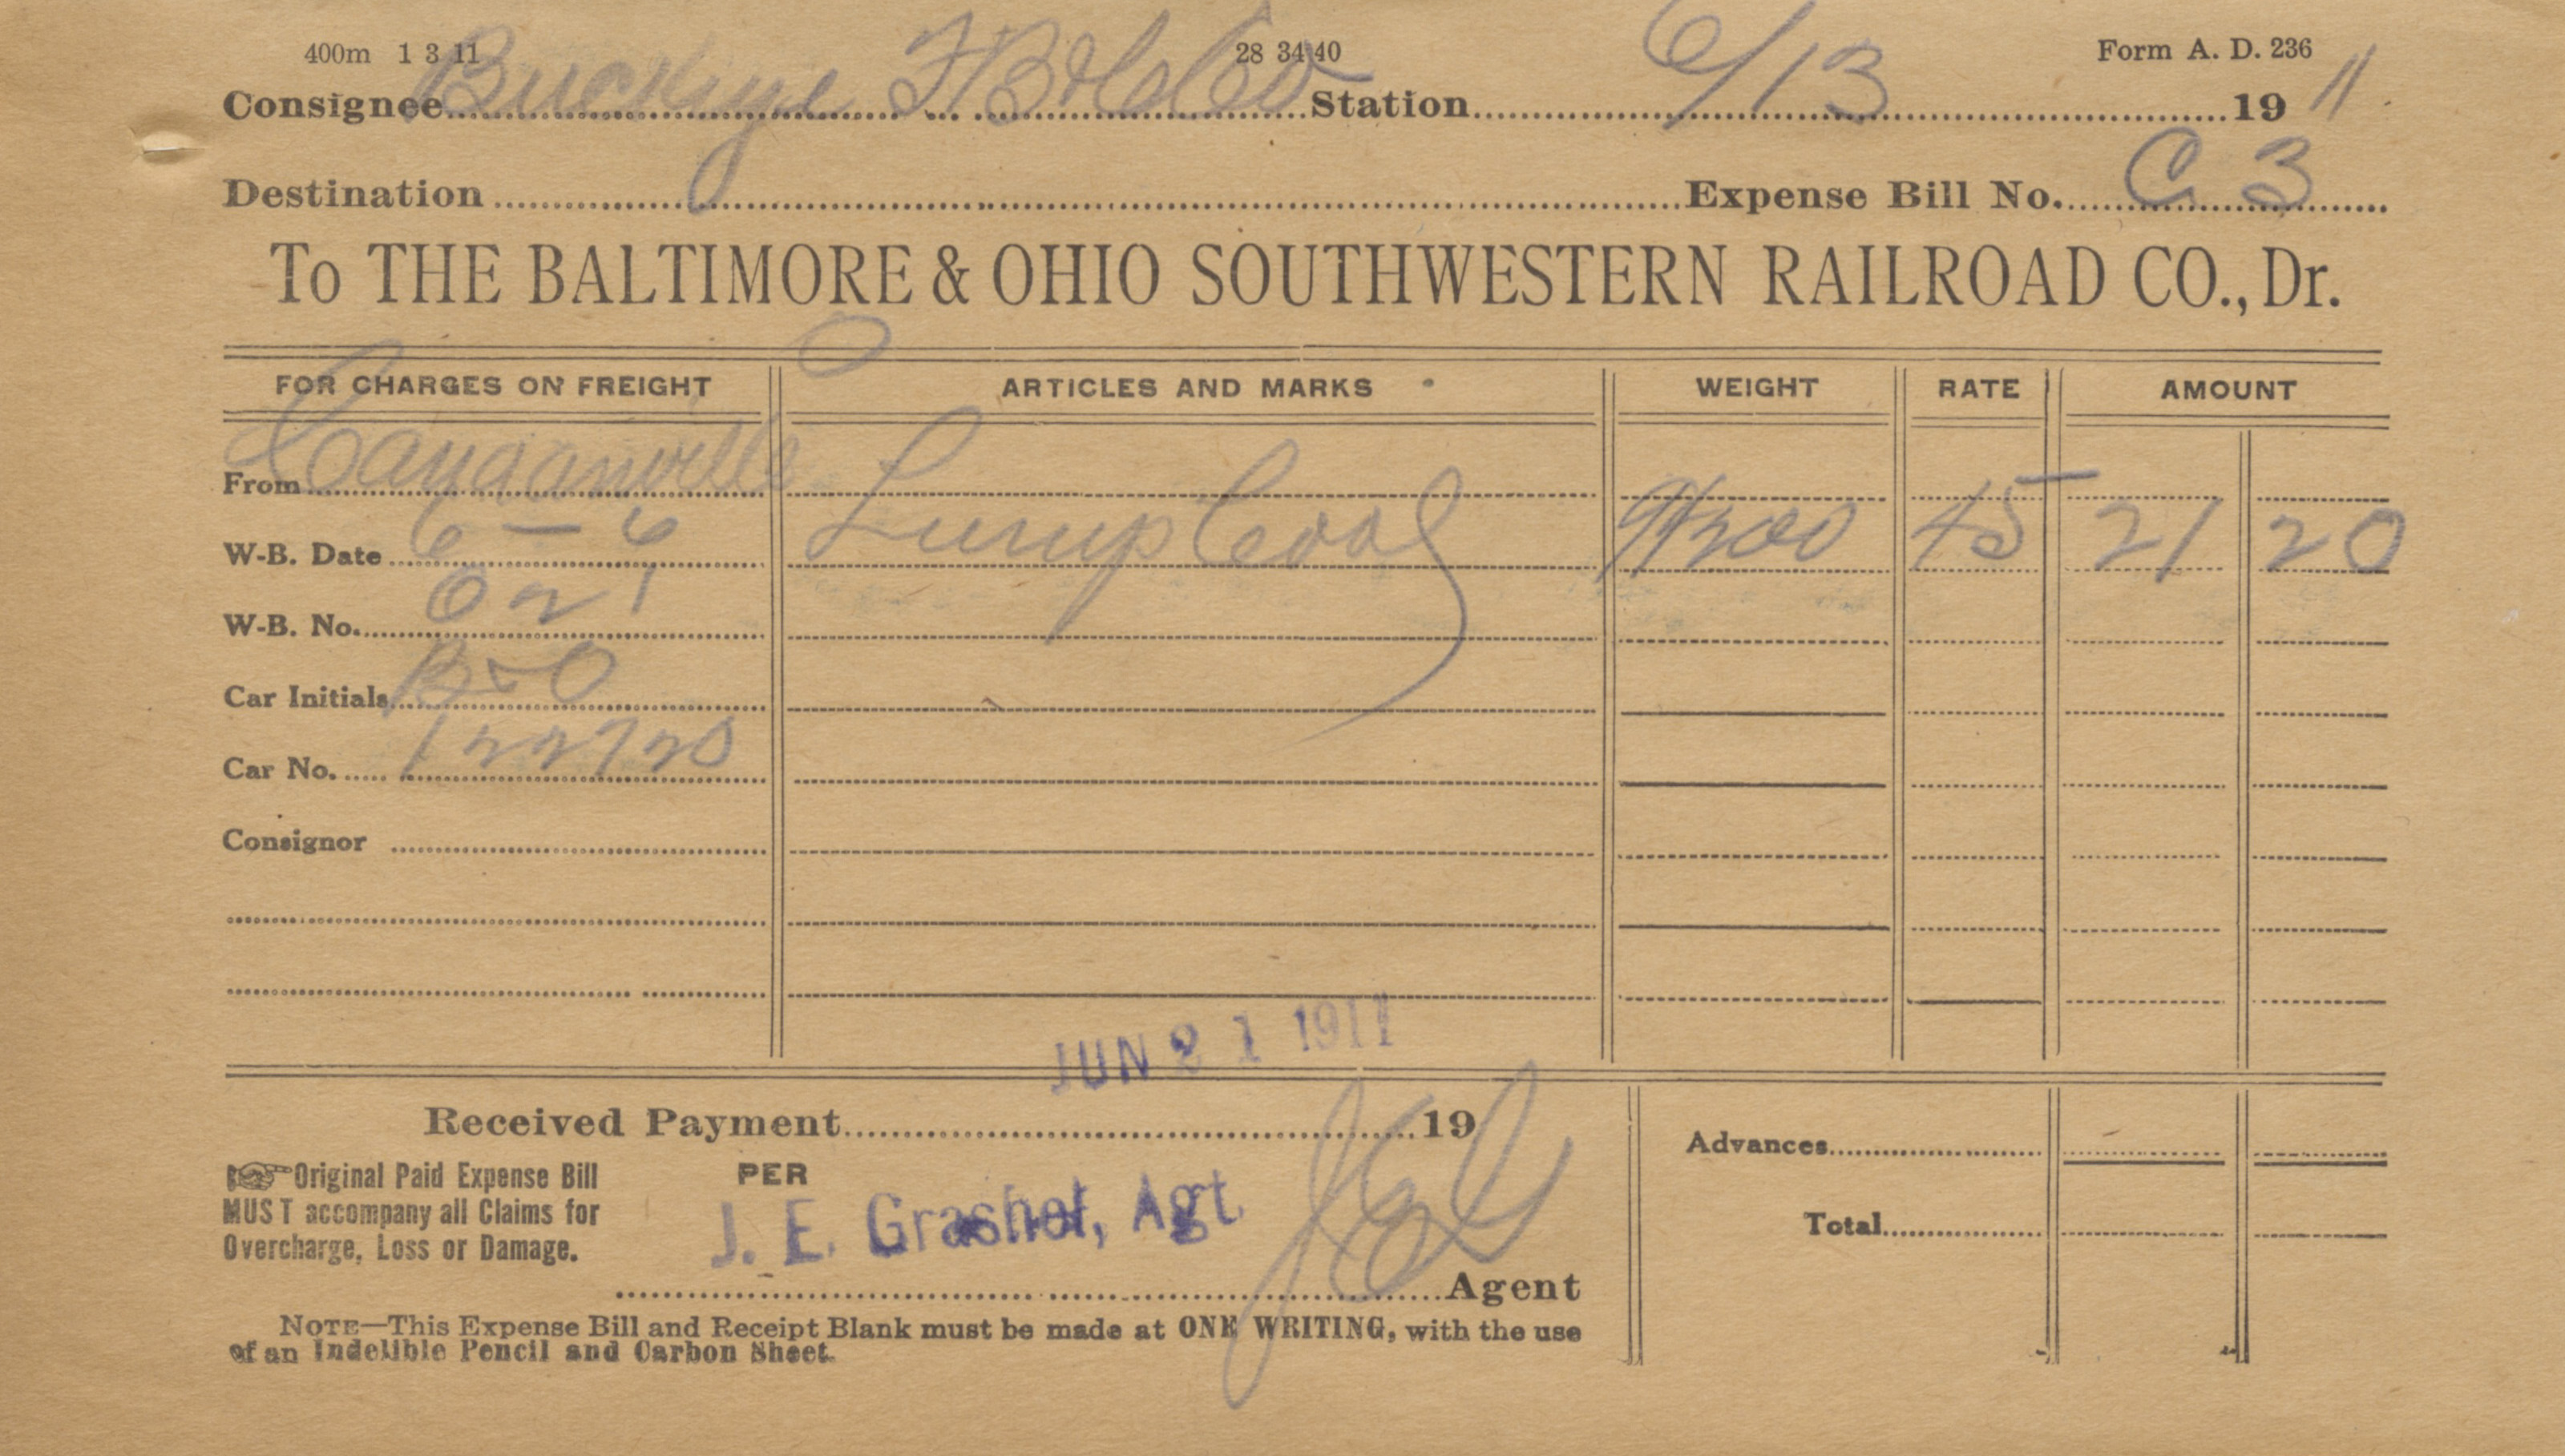 400m 1 3 11 28 34 40 Form A. D. 236
Consignee Buckeye F B & Co Station 6/13 1911.
Destination Expense Bill No. C 3
To THE BALTIMORE & OHIO SOUTHWESTERN RAILROAD CO., Dr.
FOR CHARGES ON FREIGHT ARTICLES AND MARKS WEIGHT RATE AMOUNT
From
W-B. Date 6 - 6 Lump Coal 45 21 20
W-B. No. 621
Car Initials B&O
Car No. 122720
Consignor
JUN 21 1911
Received Payment 19
Original Paid Expense Bill
MUST accompany all Claims for
Overcharge, Loss or Damage.
PER
J. E. Grashel, Agt.
Agent
Advances
Total
NOTE—This Expense Bill and Receipt Blank must be made at ONE WRITING, with the use
of an Indelible Pencil and Carbon Sheet.